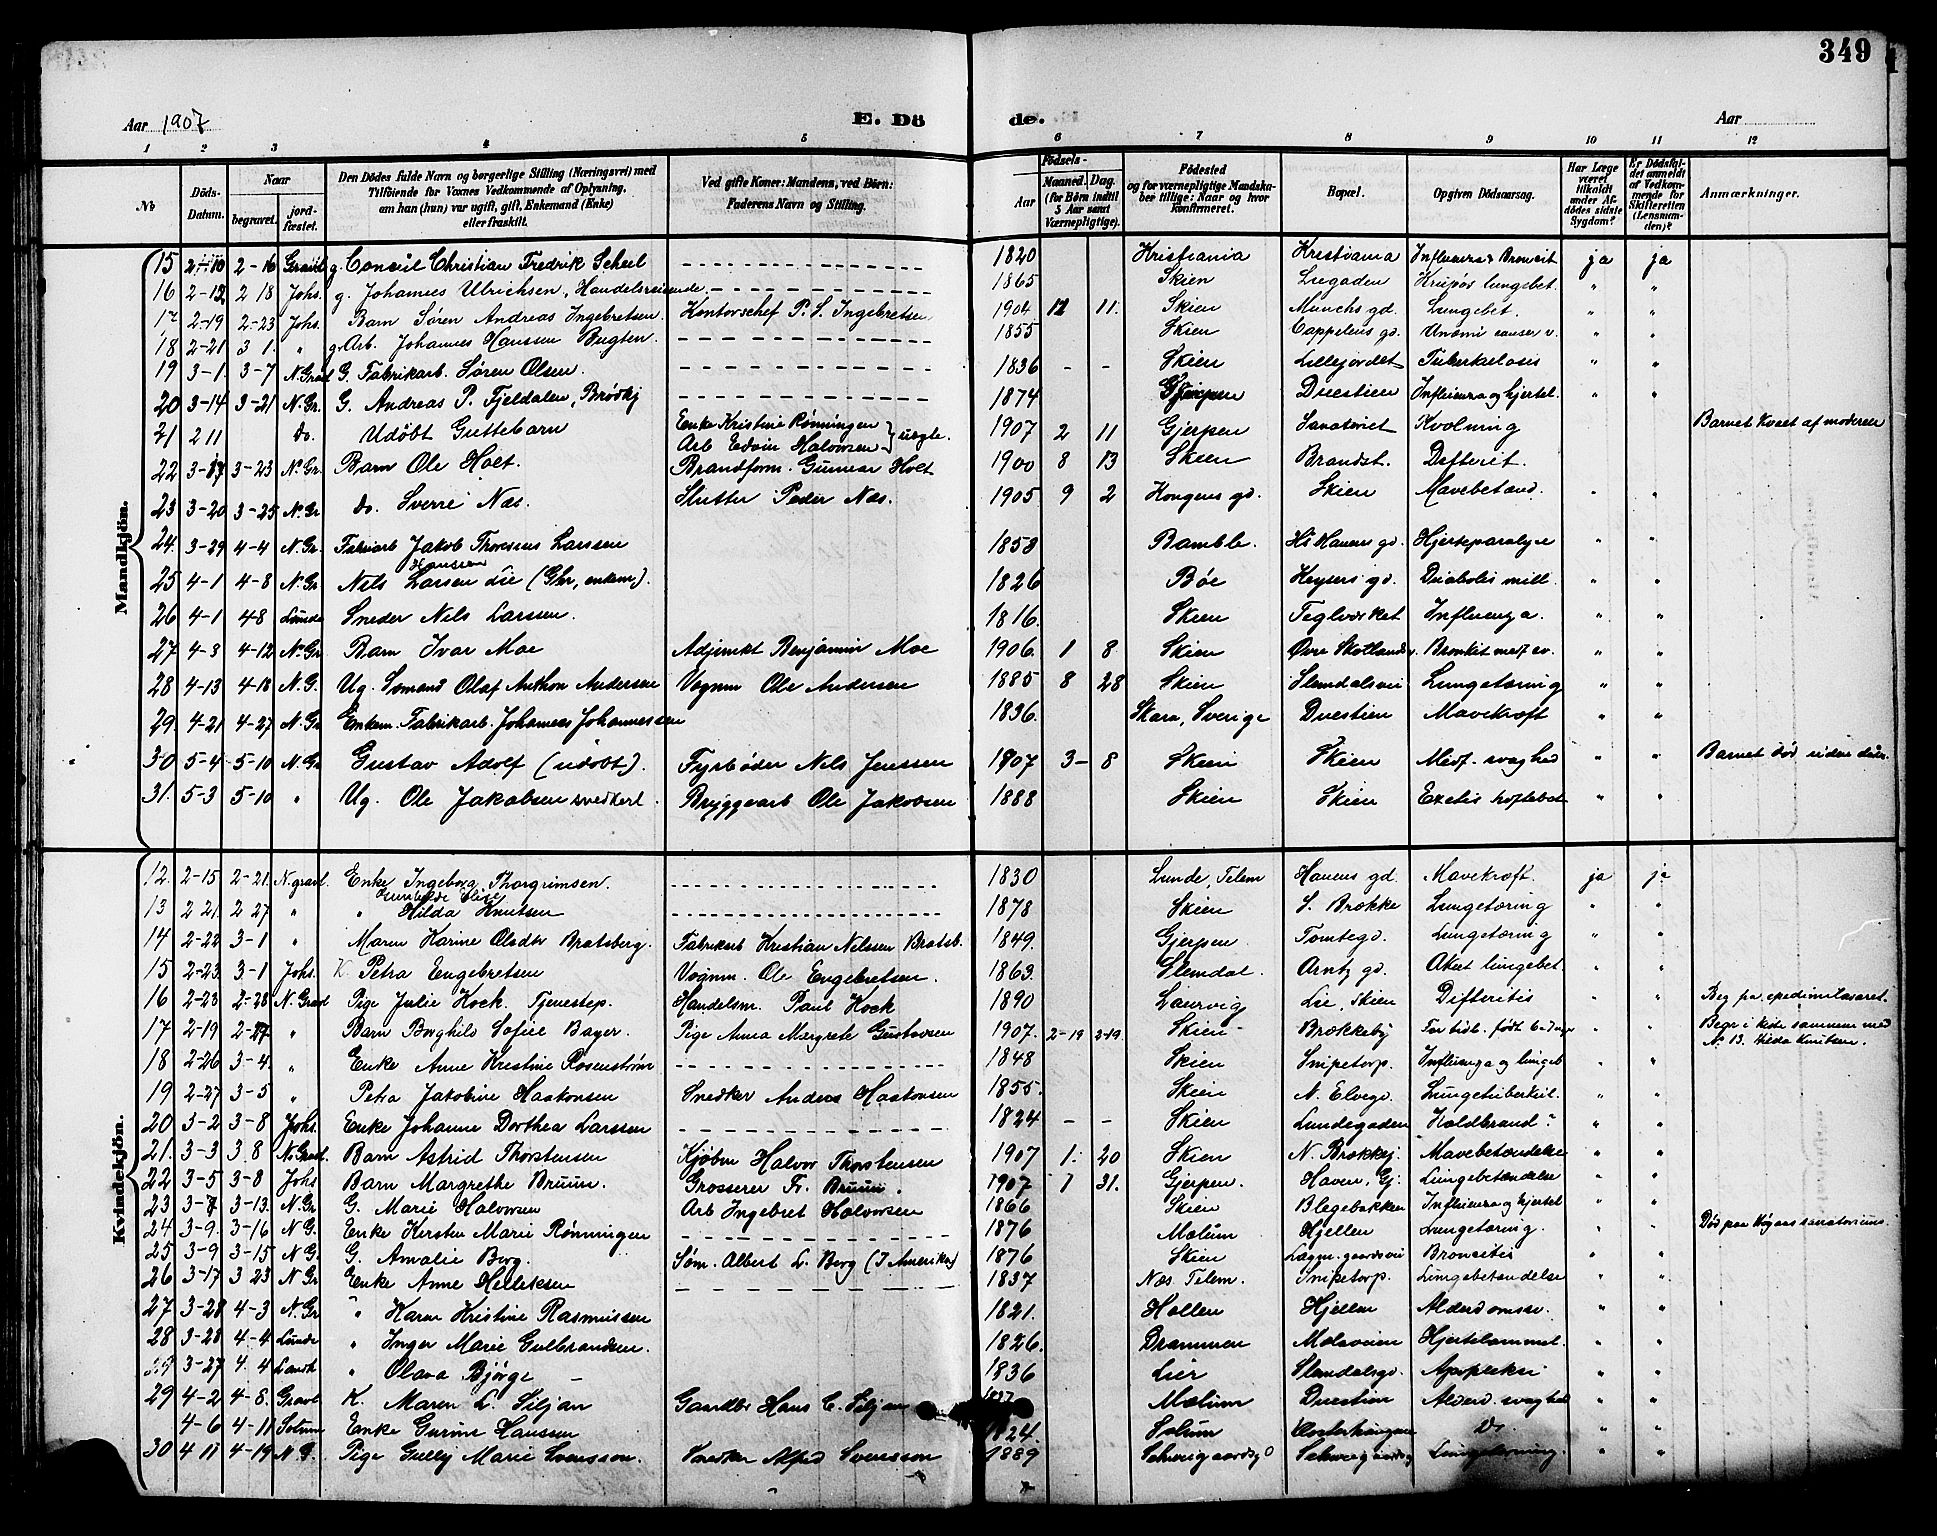 349
Aar 1907 E. Dö de. Aar
1 2 3 4 5 6 7 8 9 10 11 12
No Döds-Datum. Naar begravet. jordfæstet. Den Dödes fulde Navn og borgerlige Stilling (Næringsvei) med Tilföiende for Voxnes Vedkommende af Oplysning, om han (hun) var ugift, gift, Enkemand (Enke) eller fraskilt. Ved gifte Koner: Mandens, ved Börn: Faderens Navn og Stilling. Födsels- Aar Maaned. Dag. (for Börn indtil 5 Aar samt Værnepligtige). Födested og for værnepligtige Mandskaber tillige: Naar og hvor Konfirmeret. Bopæl. Opgiven Dödsaarsag. Har Læge været tilkaldt under Afdödes sidste Sygdom? Er Dödsfaldet anmeldt af Vedkommende for Skifteretten (Lensmanden)? Anmærkninger.
Mandkjön.
15 2-10 2-16 Gravl g. Consul Christian Fredrik Scheel 1820 Kristiania Kristiania Influenza & Broncit ja ja
16 2-12 2 18 Johs. g. Johannes Ulrichsen, Handelsreisende 1865 Skien Luegaden Krupøs lungebet. " "
17 2-19 2-23 Johs. Barn Søren Andreas Ingebretsen. Kontorschef P. S. Ingebretsen 1904 12 11. Skien Munchs gd. Lungebet. " "
18 2-21 3 1. " g. Arb. Johannes Hanssen Bugten. 1855 Skien Cappelens gd. " "
19 3-1. 3-7 N. Gravl G. Fabrikarb. Søren Olsen. 1836 - - Skien Lillejordet Tuberkelosis " "
20 3-14 3-21 N. Gr. G. Andreas P. Fjeldalen, 1874 Gjerpen Duestien Influenza og hjertel. " "
21 2 11 do. Udøbt Guttebarn Enke Kristine Rønningen Arb Edvin Halvorsen } uegte. 1907 2 11 Gjerpen Sanatoriet Kvælning Barnet kvalt af moderen
22 3-17 3-23 N. Gr. Barn Ole Hoet. Brandform. Gunnar Hoet 1900 8 13 Skien Brandst. Difterit. " "
23 3-20 3-25 N. Gr do. Sverre Næs. Slutter Peder Næs. 1905 9 2 Kongens gd. Skien Mavebetænd. " "
24. 3-29 4-4 N. Gr. Fabrikarb Jakob Thoresens Larssen 1858 Bamble. Hjerteparalyse " "
25 4-1 4-8 N. Gr Nels Hansen Larsen Lie (Ghr, enkem). 1826 Bøe Keysers gd. Diabetis mill. " "
26 4-1 4-8 Lunde Sneder Nels Larssen. 1816. Skien Teglværket Influenza. " "
27 4-3 4-12 N. Gr. Barn Ivar Moe Adjunkt Benjamin Moe 1906. 1 8 Skien Øvre Skotlandsv. Bronkit medf. sv. " "
28 4-13 4-18 N. G. Ug. Sømand Olaf Anthon Andersen Vognm Ole Andersen 1885 8 28 Skien Slemdalsvei Lungetæring " "
29. 4-21 4-27 N. Gr Enkem. Fabrikarb. Johannes Johannessen 1836. Skara, Sverige Duestien Mavekræft " "
30 5-4 5-10 N. Gr Gustav Adolf (udøbt). Fyrbøder Nels Jenssen 1907 3- 8 Skien Skien Medf. svaghed " " Barnet død uden daab.
31. 5-3 5-10 " Ug. Ole Jakobsen snedkerl. Bryggearb Ole Jakobsen 1888 Skien Skien hoftebet " "
Kvindekjön.
12. 2-15 2-21. N. gravl. Enke Ingeborg Thorgrimsen. 1830 Lunde, Telem Havens gd. Mavekræft. ja ja
13 2 21 2 27 " " Gunhilde Elise Hilda Knutsen 1878 Skien S. Brække Lungetæring " "
14 2-22 3-1 " Maren Karine Olsdtr Bratsberg. Fabrikarb Kristian Nelssen Bratsb. 1849. Gjerpen Tomtegd. Lungetæring " "
15 2-23 3-1 Johs. K. Petra Engebretsen Vognm. Ole Engebretsen. 1863. Slemdal. Arntz gd. Akut lungebet. " "
16 2-23 2-28 N. Gravl Pige Julie Kock. Tjenestep. Handelsm. Paul Kock 1890 Laurvig Lie, Skien Difteritis " " Beg fra epedimilasaret.
17 2-19 2-27 " Barn Borghild Sofie Bayer. Pige Anna Margrete Gustavsen 1907. 2-19 2-19. Skien - Brækkeby For tidl. født 6 dage " " Begr i kiste sammen med No 13. Hilda Knutsen.
18 2-26 3-4. " Enke Anne Kristine Rosenstrøm 1848 Skien Snipetorp. Influenza og lungeb " "
19 2-27 3-5 " Petra Jakobine Haakonsen Snedker Anders Haakonsen 1855. Skien N. Elvegd. Lungetuberkul. " "
20 3-2 3-8 Johs. Enke Johanne Dorthea Larssen 1824 - - Skien Lundegaden Koldbrand " "
21. 3-3 3.8 N. Gravl. Barn Astrid Thorstensen Kjøbm Halvor Thorstensen 1907 1. 20 Skien N. Brækkj. Mavebetændelse " "
22 3-5 3-8 Johs Barn Margrethe Bruun. Grosserer Fr. Bruun. 1907 1 31. Gjerpen. Haven, Gj. Lungebetændelse " "
23 3-7 3-13. N. Gr G. Marie Halvorsen Arb Ingebret Halvorsen 1866 Skien Blegebakken Influenza og hjertel " "
24 3-9. 3-16 N. G. Enke Kersten Marie Rønningen 1876 Melum Hjellen Lungetæring. " Død paa sanatorium.
25 3-9 3-15 N. G. G. Amalie Berg. Søm. Albert L. Berg (I Amerika) 1876 Skien Broncitis " "
26 3-17 3 23 N. Gr Enke Anne Helleksen 1837 Næs. Telem. Snipetorp. Lungebetændelse " "
27 3-28 4-3 N. Gr " Karen Kristine Rasmussen 1821. Hollen Hjellen Alderdomssv. " "
28 3-28 4-4 Lunde " Inger Marie Gulbrandsen. 1826. Drammen Molaveien Hjertelammel. " "
29 3-27 4. 4 " Olava Bjørge - 1836 Lier Slemdalsgd. Apopleksi " "
29 4-2 4-8. Gravl K. Maren L. Siljan Gaardbr Hans C. Siljan 1837 Melum Duestien Alderd. svaghed " "
4-6 4-11 Solum Enke Gurine Hanssen 1824. Solum Do. " "
30 4 11 4-19 N. G. Pige Gully Marie Svensson. Snedker Alfred Svensson 1889 Schweigaardsg Schweigaardsg Lungetæring. " "